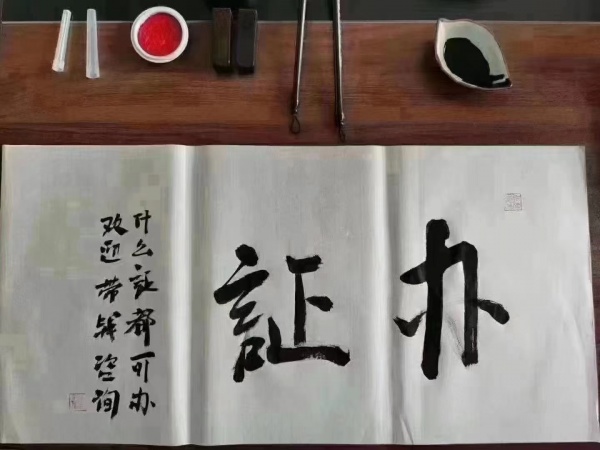 办証
什么证都可办
欢迎带钱咨询